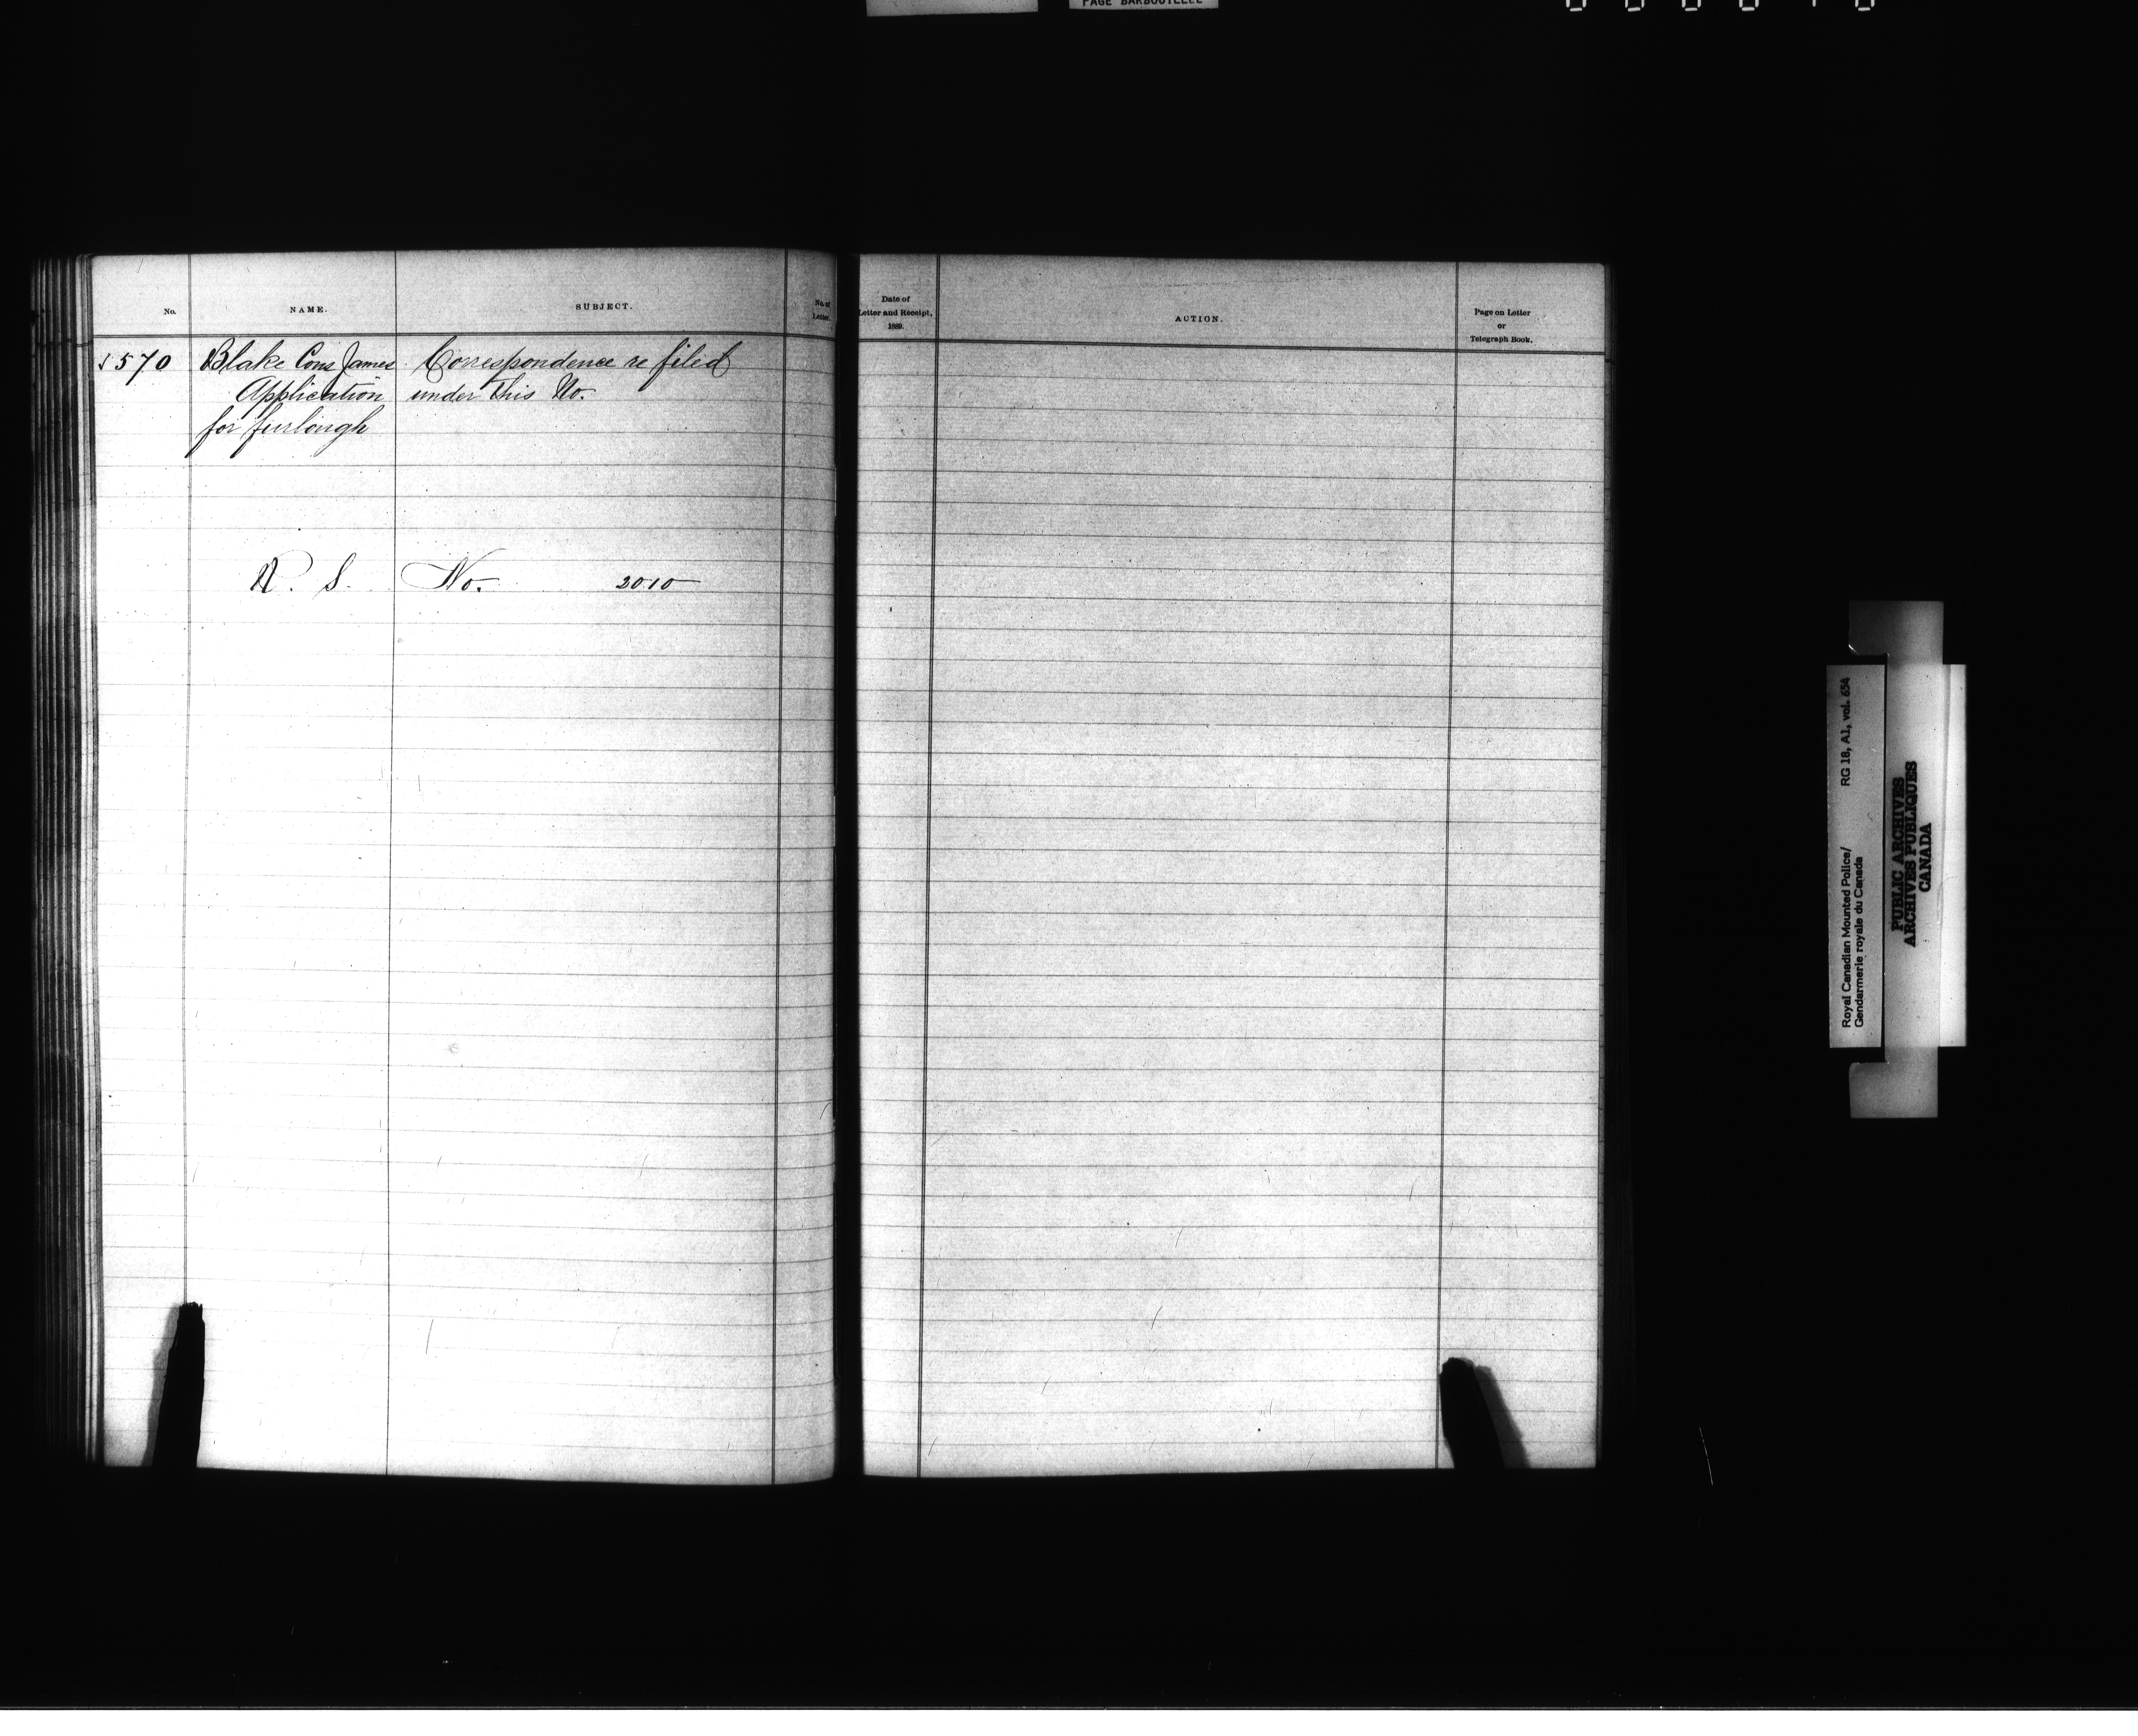 PAGE BARBOUILLEE
No.
NAME.
SUBJECT.
No. of
Letter.
Date of
Letter and Receipt,
1889.
ACTION.
Page on Letter
or
Telegraph Book.
570 Blake Cons James Correspondence re filed
Application under this No.
for furlough
R. S. No. 2010
Royal Canadian Mounted Police/ RG 18, A1, vol. 654
Gendarmerie royale du Canada
PUBLIC ARCHIVES
ARCHIVES PUBLIQUES
CANADA